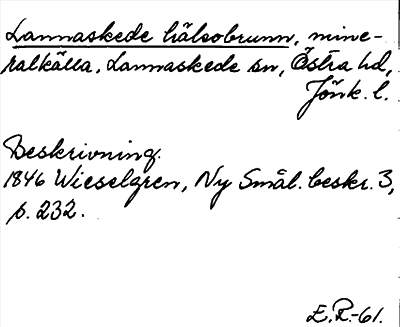 Lannaskede hälsobrunn, mine-
ralkälla. Lannaskede sn, Östra hd,
Jönk. l.
Beskrivning.
1846 Wieselgren, Ny Smål. beskr. 3,
p. 232.
E.R.-61.